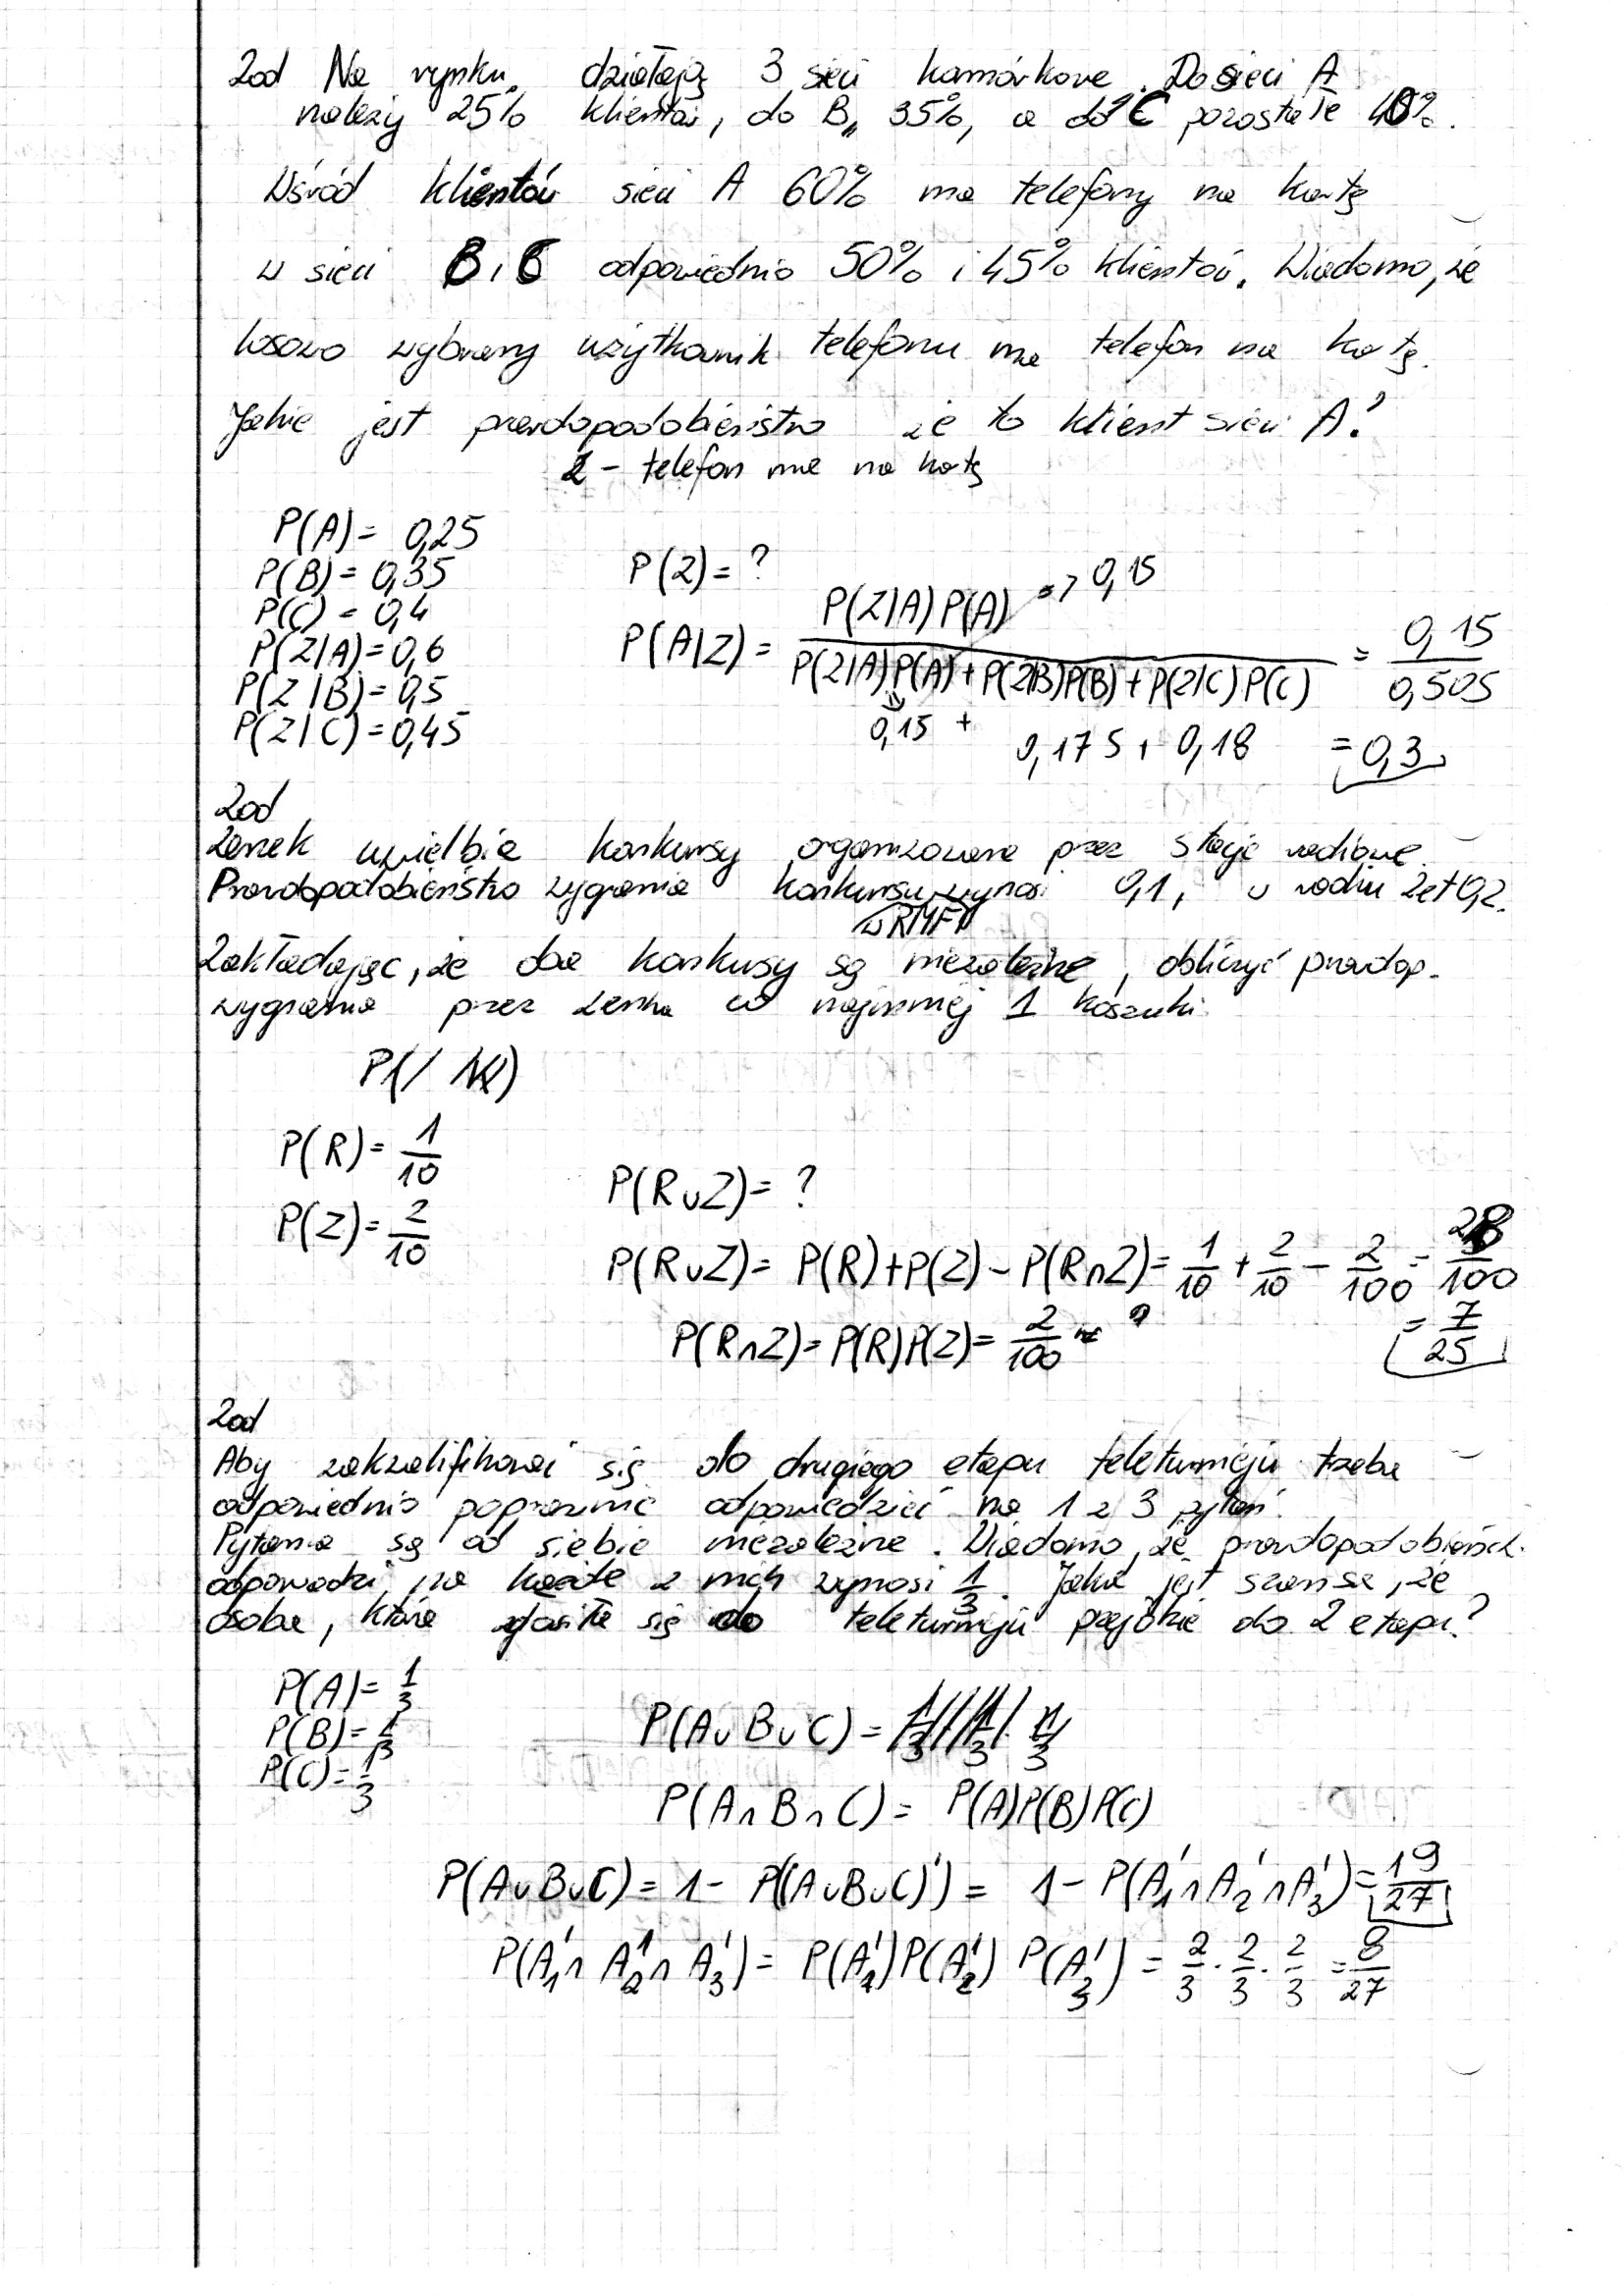 Zad Na rynku działają 3 sieci komórkowe. Do sieci A
należy 25% klientów, do B 35%, a do C pozostałe 40%.
Wśród klientów sieci A 60% ma telefony na kartę
w sieci B i C odpowiednio 50% i 45% klientów. Wiadomo, że
losowo wybrany użytkownik telefonu ma telefon na kartę.
Jakie jest prawdopodobieństwo że to klient sieci A?
Z - telefon ma na kartę
P(A) = 0,25
P(B) = 0,35
P(C) = 0,4
P(Z|A) = 0,6
P(Z|B) = 0,5
P(Z|C) = 0,45
P(Z) = ?
P(A|Z) = P(Z|A) P(A) => 0,15 / P(Z|A) P(A) + P(Z|B) P(B) + P(Z|C) P(C) = 0,15 / 0,505
0,15 + 0,175 + 0,18 = 0,3
Zad
Zenek uwielbia konkursy organizowane przez stacje radiowe.
Prawdopodobieństwo wygrania konkursu wynosi 0,1, w radiu Zet 0,2.
w RMF
Zakładając, że oba konkursy są niezależne, obliczyć prawdop.
wygrania przez Zenka co najmniej 1 koszulki.
P(R) = 1/10
P(Z) = 2/10
P(R∪Z) = ?
P(R∪Z) = P(R) + P(Z) - P(R∩Z) = 1/10 + 2/10 - 2/100 = 28/100
= 7/25
P(R∩Z) = P(R) P(Z) = 2/100
Zad
Aby zakwalifikować się do drugiego etapu teleturnieju trzeba
odpowiednio poprawnie odpowiedzieć na 1 z 3 pytań.
Pytania są od siebie niezależne. Wiadomo, że prawdopodobieńst.
odpowiedzi na każde z nich wynosi 1/3. Jaka jest szansa, że
osoba, która zgłosiła się do teleturnieju przejdzie do 2 etapu?
P(A) = 1/3
P(B) = 1/3
P(C) = 1/3
P(A∪B∪C) =
P(A∩B∩C) = P(A)P(B)P(C)
P(A∪B∪C) = 1 - P((A∪B∪C)') = 1 - P(A₁'∩A₂'∩A₃') = 19/27
P(A₁'∩A₂'∩A₃') = P(A₁')P(A₂') P(A₃') = 2/3 · 2/3 · 2/3 = 8/27